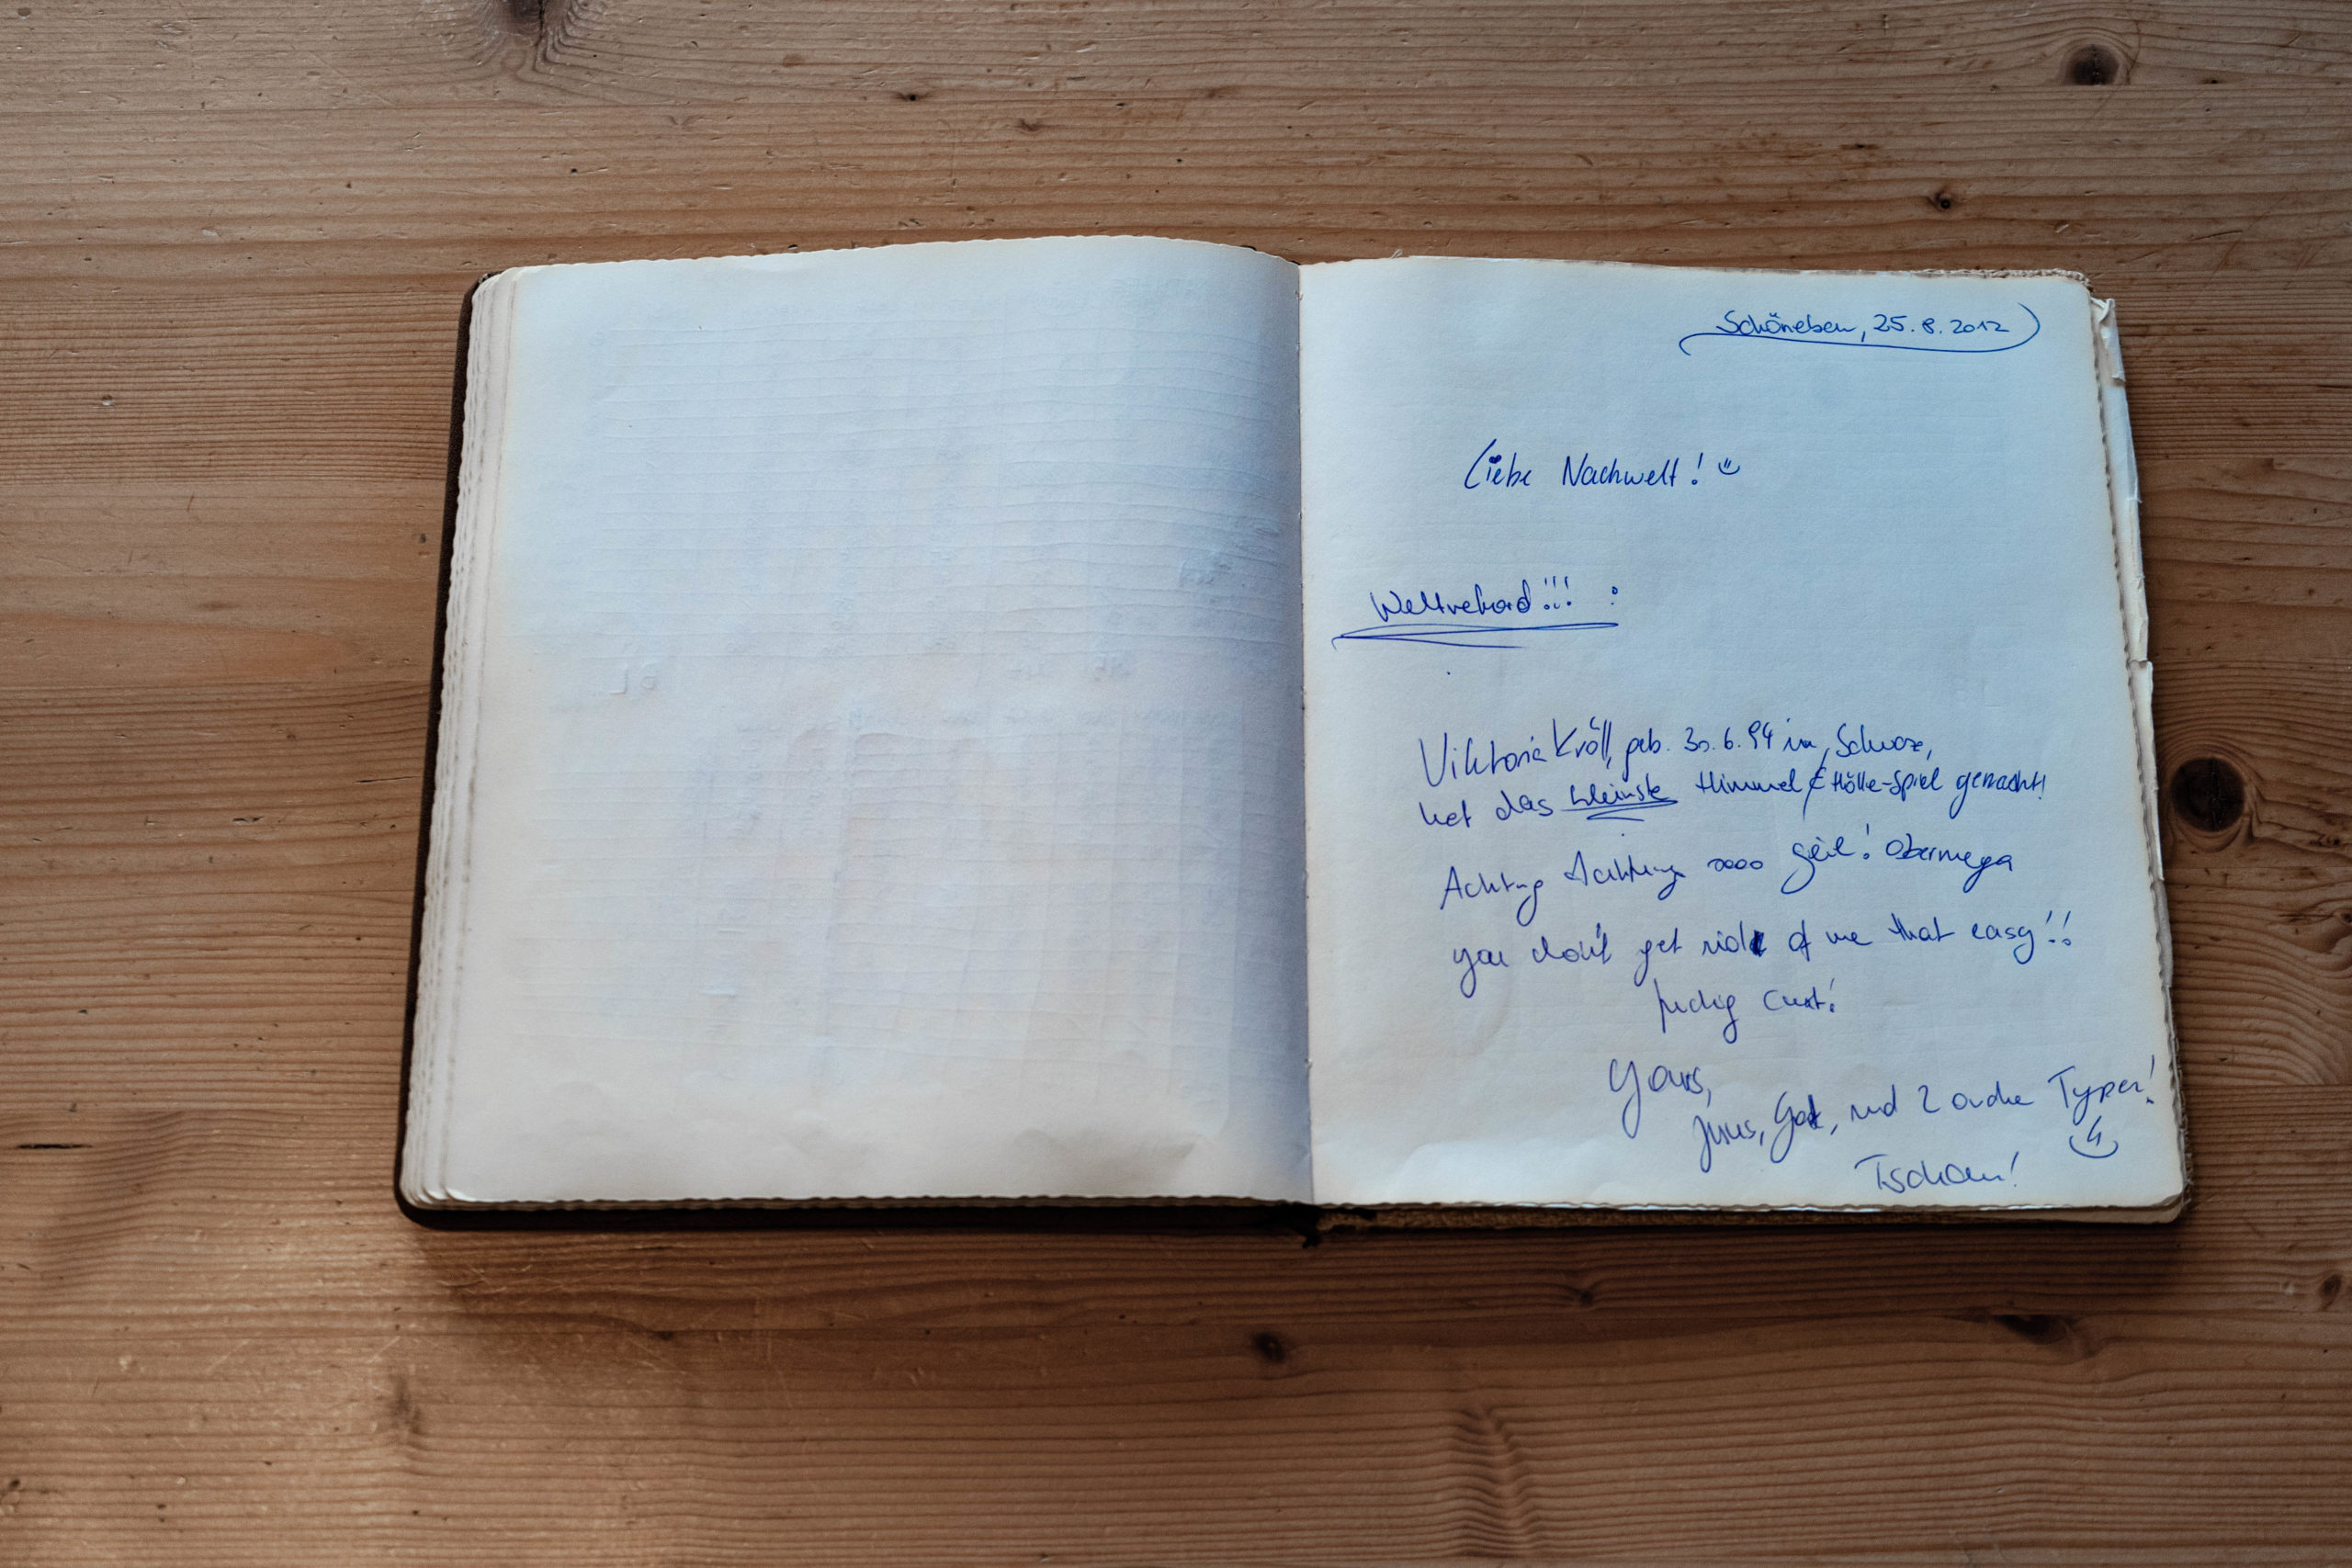 Schöneben, 25.8.2012
Liebe Nachwelt!
Weltrekord!!! :
Viktoria Kröll, geb. 30.6.94 in Schwaz,
hat das kleinste Himmel & Hölle-Spiel gemacht!
Achtung Achtung sooo geil! Obermega
you don't get rid of me that easy!!
Yours,
Jesus, God, und 2 andre Typen!
Tschau!